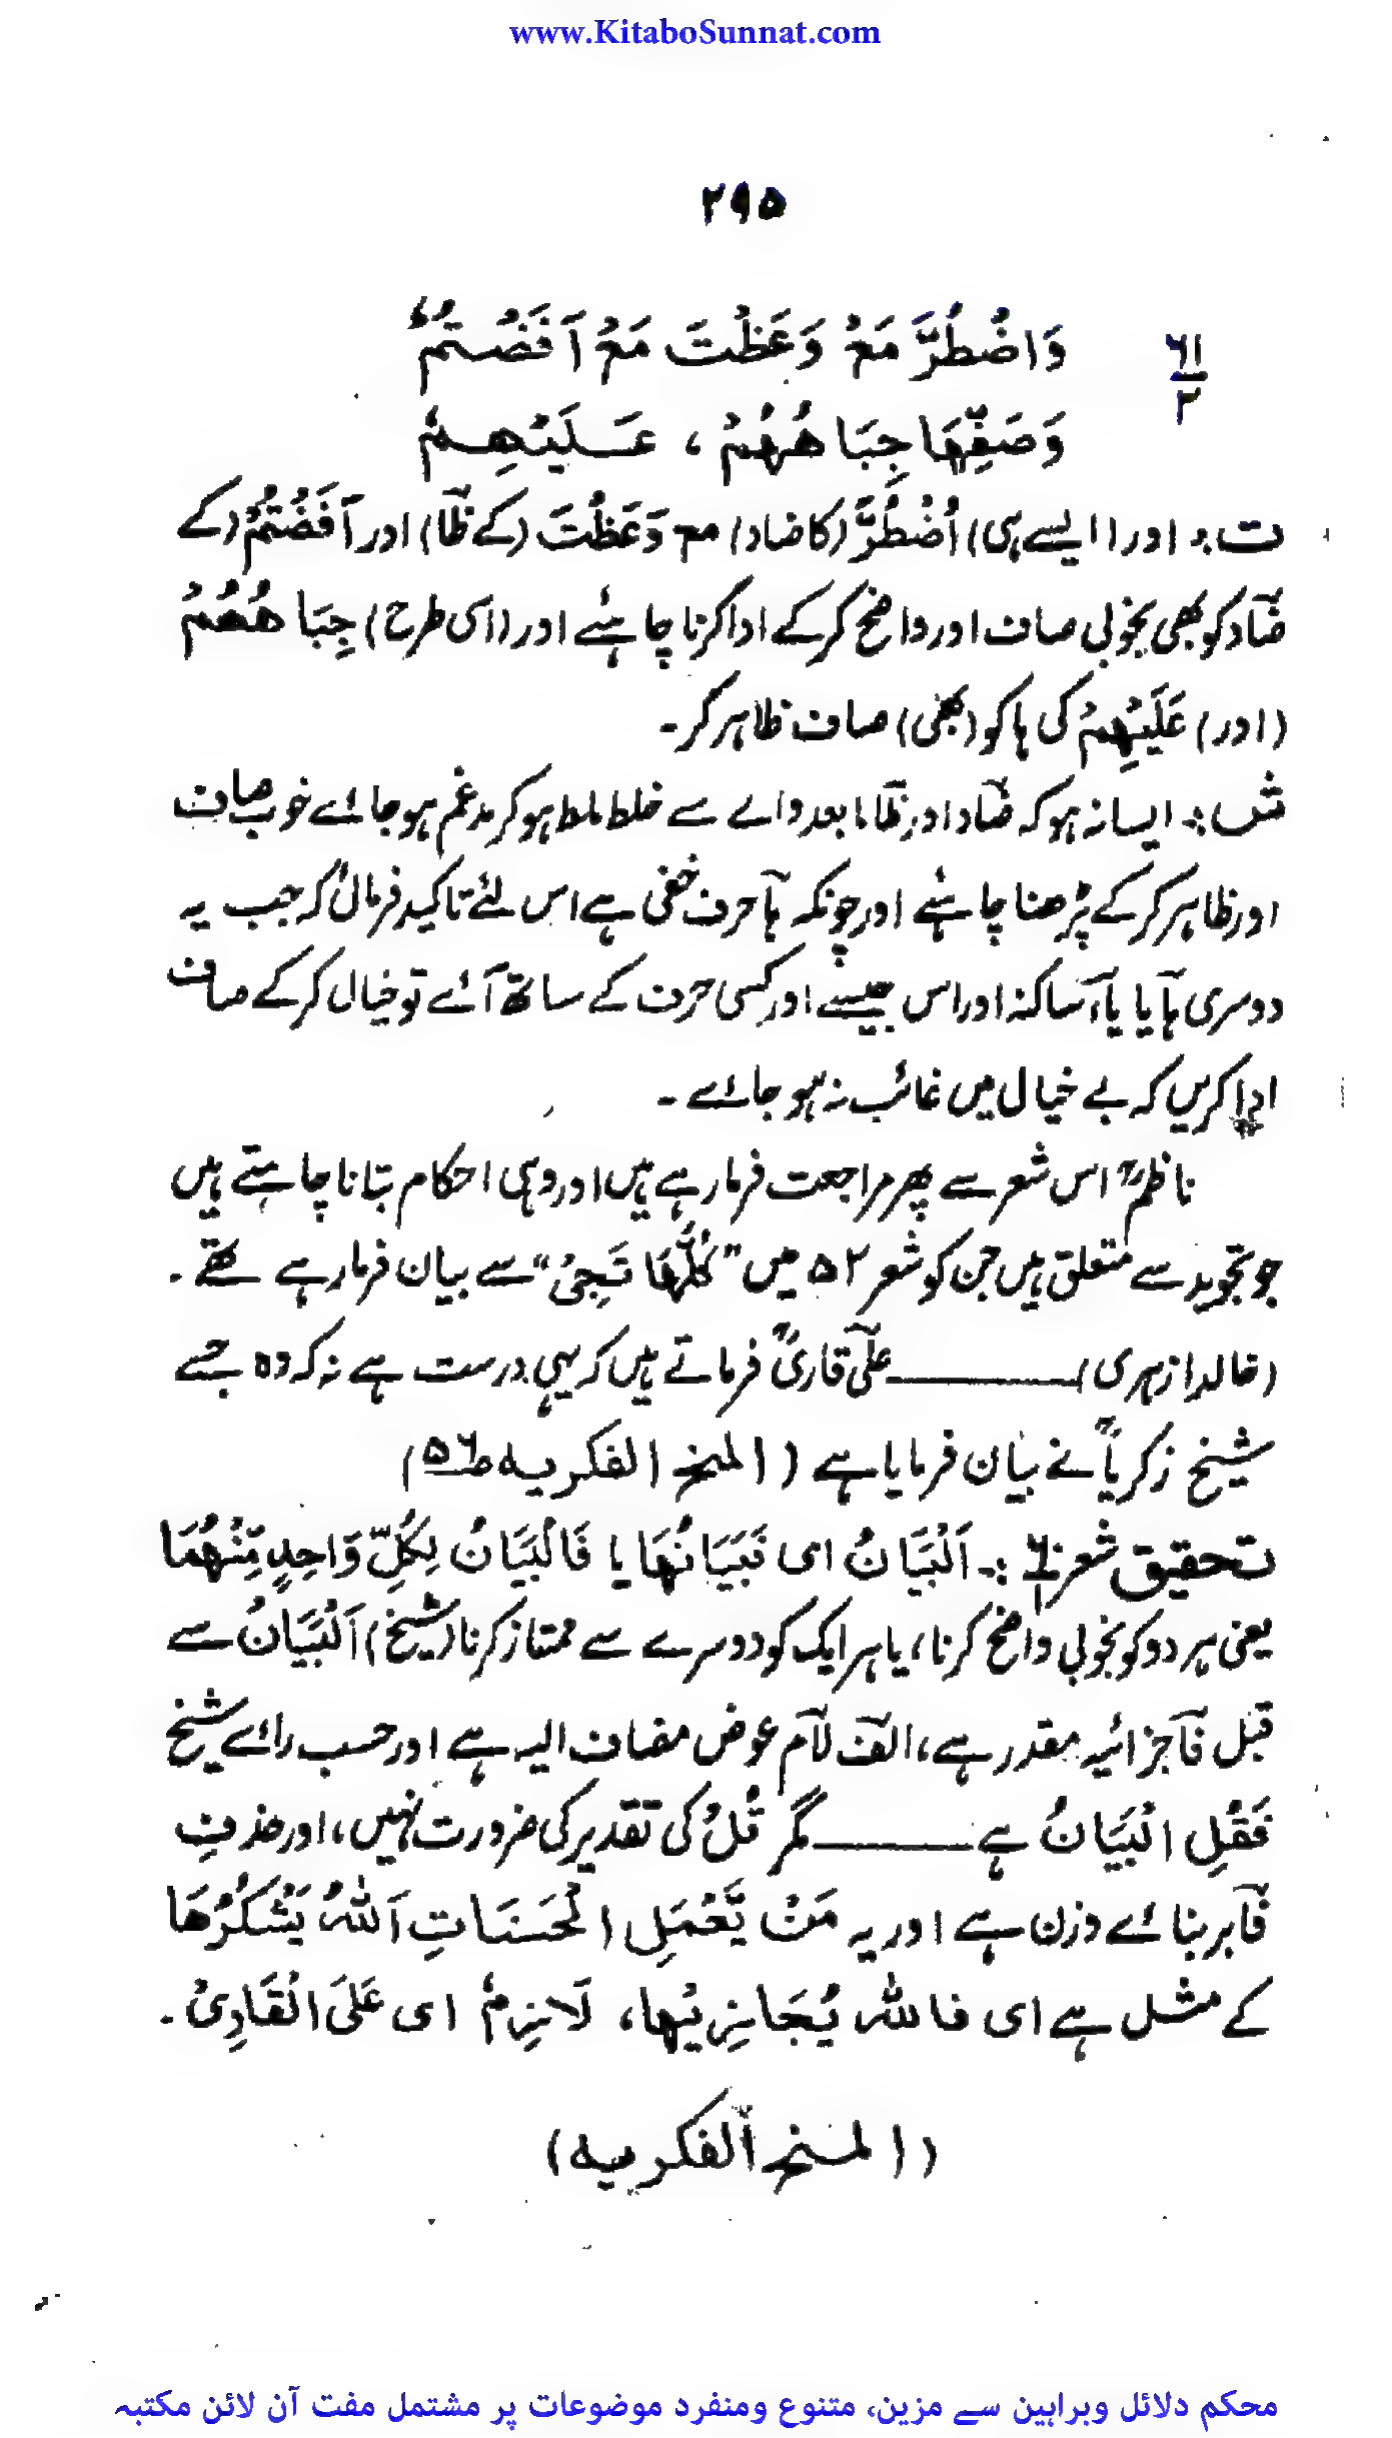 www.KitaboSunnat.com
۲۹۵
۶۱
۲
وَاضْطُرَّ مَعْ وَعَظْتَ مَعْ اَفَضْتُمْ
وَصَفِّهَا جِبَاهُهُمْ ، عَلَيْهِمْ
ت :۔ اور (ایسے ہی) اُضْطُرَّ (کا ضاد) مع وَعَظْتَ (کے ظآ) اور اَفَضْتُمْ (کے
ضآد کو بھی بخوبی صاف اور واضح کرکے ادا کرنا چاہئے اور (اسی طرح) جِبَاهُهُمْ
(اور) عَلَيْهِمْ کی ہا کو (بھی) صاف ظاہر کر ۔
ش :۔ ایسا نہ ہو کہ ضآد اور ظآ مابعد والے سے خلط ملط ہو کر مدغم ہو جائے خوب صاف
اور ظاہر کرکے پڑھنا چاہئے اور چونکہ ہآ حرف خفی ہے اس لئے تاکید فرمائی کہ جب یہ
دوسری ہآ یا یآ ساکنہ اور اس جیسے اور کسی حرف کے ساتھ آئے تو خیال کرکے صاف
ادا کریں کہ بے خیال میں غائب نہ ہو جائے ۔
ناظمؒ اس شعر سے پھر مراجعت فرما رہے ہیں اور وہی احکام بتانا چاہتے ہیں
جو تجوید سے متعلق ہیں جن کو شعر ۵۲ میں "كُلُّهَا تَجِیْ" سے بیان فرما رہے تھے ۔
(خالد ازہری) ــــــــ علیٓ قاریؒ فرماتے ہیں کہ یہی درست ہے نہ کہ وہ جسے
شیخ زکریاؒ نے بیان فرمایا ہے (المنح الفکریہ ص۵۶)
تحقیق شعر ۶۰ :۔ اَلْبَيَانُ ای فَبَيَانُهَا یا فَالْبَيَانُ لِكُلِّ وَاحِدٍ مِّنْهُمَا
یعنی ہر دو کو بخوبی واضح کرنا، یا ہر ایک کو دوسرے سے ممتاز کرنا (شیخ) اَلْبَيَانُ سے
قبل فآ جزائیہ مقدر ہے، الفٓ لآم عوض مضاف الیہ ہے اور حسب رائے شیخ
فَقُلِ الْبَيَانُ ہے ــــــــ مگر قُلْ کی تقدیر کی ضرورت نہیں، اور حذفِ
فآ بر بنائے وزن ہے اور یہ مَنْ يَّعْمَلِ الْحَسَنَاتِ اَللهُ يَشْكُرُهَا
کے مثل ہے ای فالله يُجَازِيْها، لَازِمُ ای عَلَى الْقَارِئْ ۔
(المنح الفکریہ)
محکم دلائل وبراہین سے مزین، متنوع ومنفرد موضوعات پر مشتمل مفت آن لائن مکتبہ